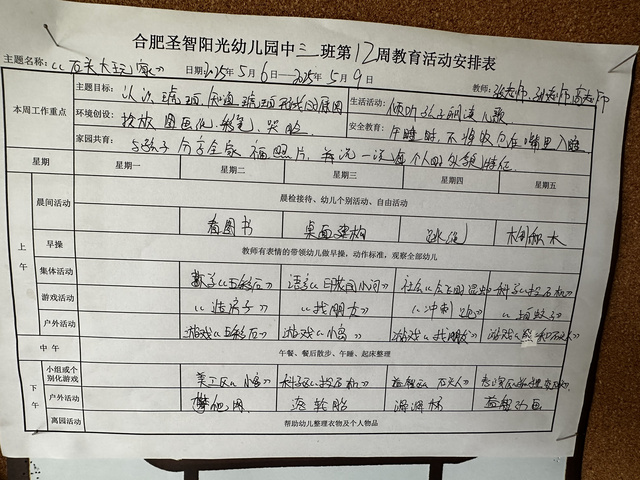 合肥圣智阳光幼儿园中三班第12周教育活动安排表
主题名称：《石头大玩家》 日期2025年5月6日—2025年5月9日 教师：张老师、孙老师、高老师
本周工作重点
主题目标： 认识琥珀，知道琥珀形成的原因
生活活动： 倾听孩子朗读儿歌
环境创设：
安全教育： 午睡时，不将发包在嘴里入睡
家园共育： 与孩子分享全家福照片，并说一说每个人的外貌特征
星期 星期一 星期二 星期三 星期四 星期五
上午
晨间活动 晨检接待、幼儿个别活动、自由活动
看图书 桌面建构 跳绳 木制积木
早操 教师有表情的带领幼儿做早操，动作标准，观察全部幼儿
集体活动 数学《五彩石》 语言《日夜的小河》 社会 科学《投石机》
游戏活动 《造房子》 《找朋友》 《冲刺跑》
户外活动 游戏《五彩石》 游戏《小岛》 游戏《找朋友》 游戏
中午 午餐、餐后散步、午睡、起床整理
下午
小组或个别化游戏 美工区《小岛》 科学区《投石机》 益智区《石头人》
户外活动 攀爬网 滚轮胎
离园活动 帮助幼儿整理衣物及个人物品